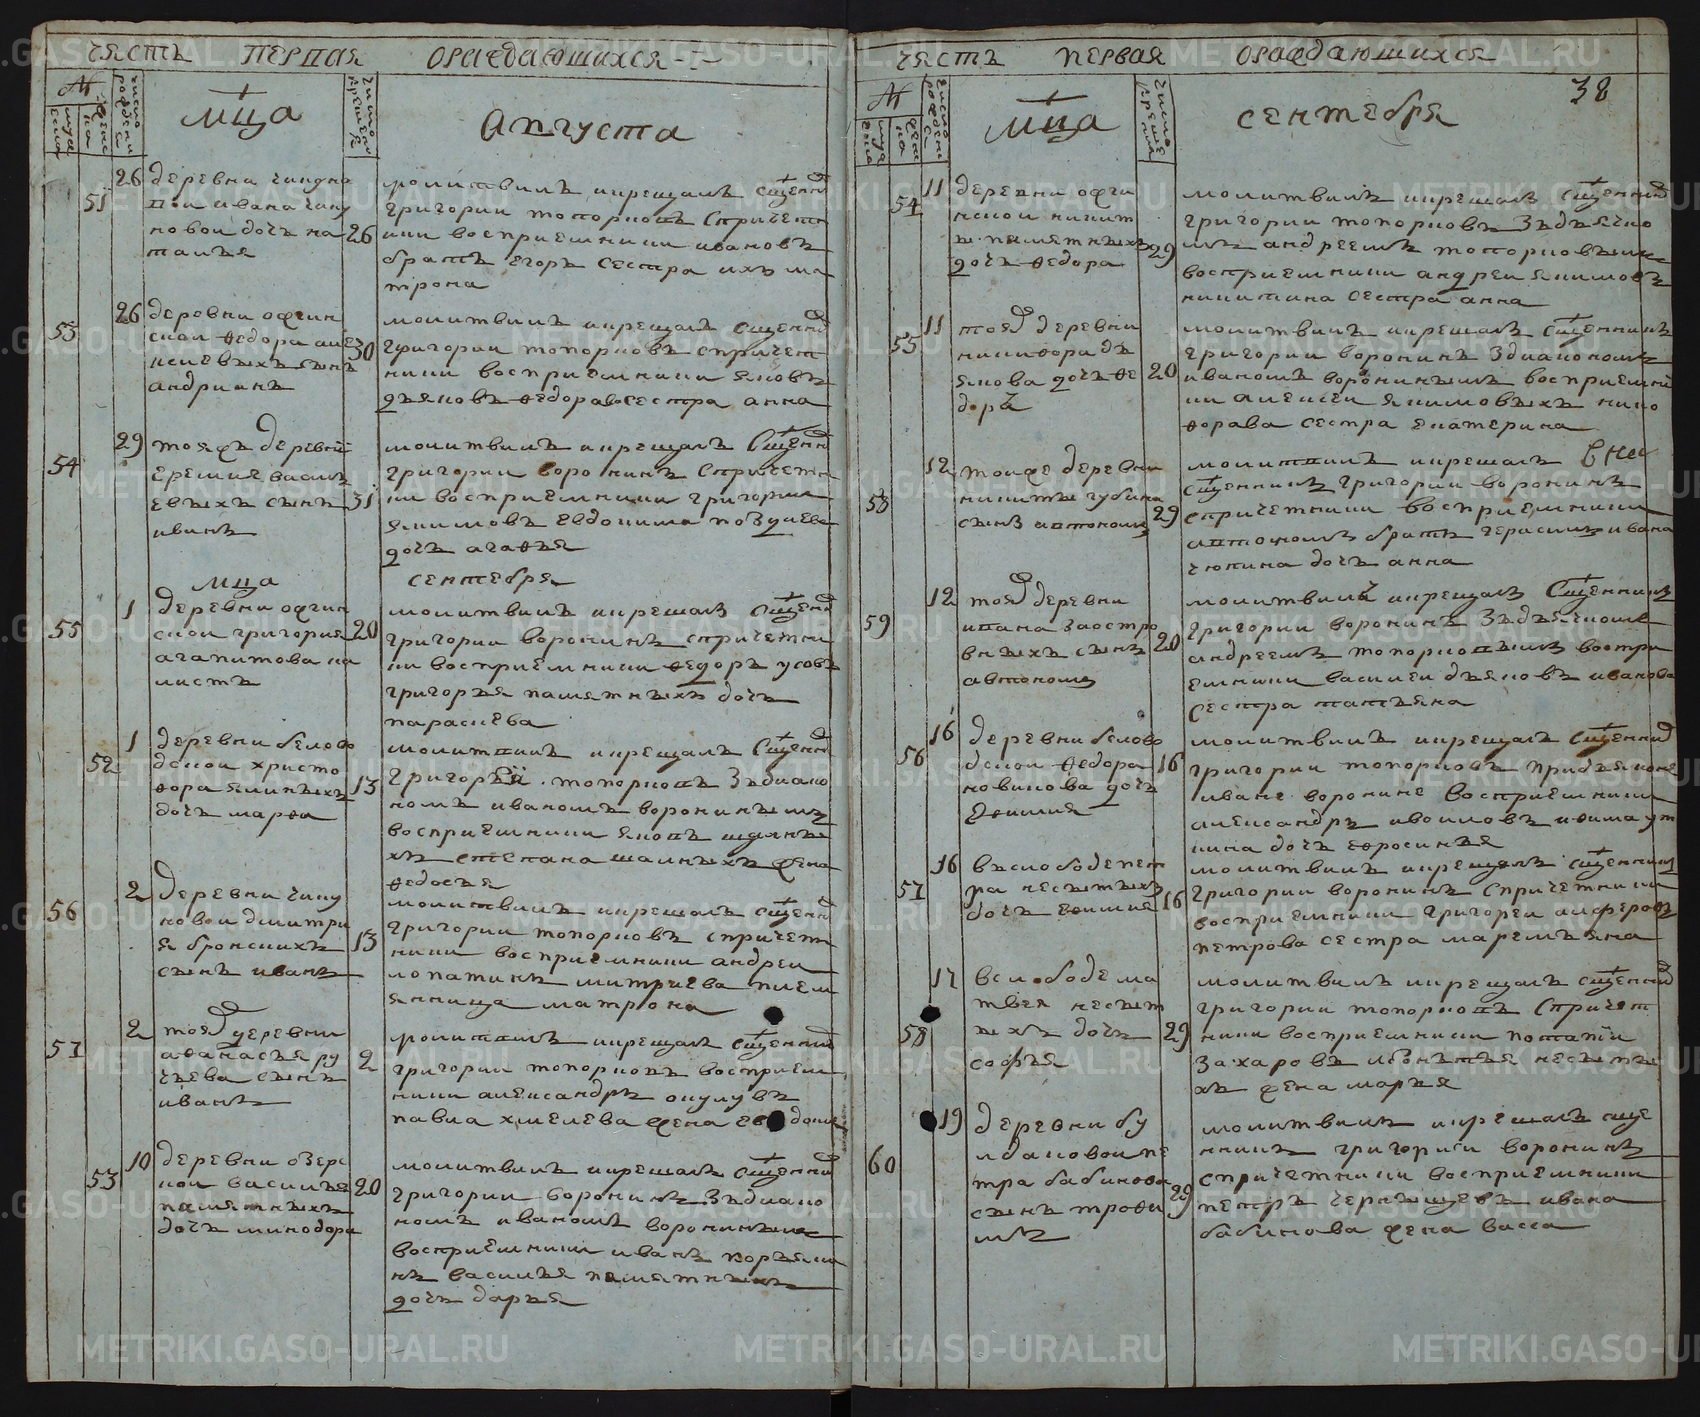 часть первая ораждающихся
мца Августа
51 26 деревни чипуно
вои ивана чипу
новои дочь на 26
талья
молитвилъ икрещалъ сщенн
григории топорковъ спричетн
ики восприемники ивановъ
братъ егоръ сестра ихъ ма
трона
53 26 деревни ожгин
скои федора але 30
ксеевыхъ сынъ
андрианъ
молитвилъ икрещалъ сщенн
григории топорковъ спричет
ники восприемники яковъ
дьяковъ федорова сестра анна
54 29 тояжъ деревни
еремия василь
евыхъ сынъ 31
иванъ
молитвилъ икрещалъ сщенн
григории воронинъ спричетн
ки восприемники григории
якимовъ евдокима
дочь агафья
мца сентебря
55 1 деревни ожгин
скои григория 20
агапитова ка
листъ
молитвилъ икрещалъ сщенн
григории воронинъ спричетни
ки восприемники федоръ усовъ
григорья памятныхъ дочь
параскева
52 1 деревни белово
дскои христо
фора яминыхъ 13
дочь марфа
молитвилъ икрещалъ сщенн
григорьи топорковъ здиако
номъ иваномъ воронинымъ
восприемники яковъ
хъ степана жена
федосья
56 2 деревни чипу
новои дмитри
я бронскихъ 13
сынъ иванъ
молитвилъ икрещалъ сщенн
григории топорковъ спричет
ники восприемники андреи
лопатинъ митриева плем
янница матрона
57 2 тояж деревни
афанасья ру 2
чьева сынъ
иванъ
молитвилъ икрещалъ сщенни
григории топорковъ восприем
ники александръ окуловъ
павла хмелева жена евдоким
53 10 деревни озерс
кои василья 20
памятныхъ
дочь минодора
молитвилъ икрещалъ сщенни
григории воронинъ здиако
номъ иваномъ воронинымъ
восприемники иванъ коръяки
нъ василья памятныхъ
дочь дарья
часть первая ораждающихся
38
мца сентебря
54 11 деревни ожги
нскои никит
ы памятныхъ 29
дочь федора
молитвилъ икрещалъ сщенник
григории топорковъ здьячко
мъ андреемъ топорковымъ
восприемники андреи якимовъ
никитина сестра анна
55 11 тояж деревни
никифора дь
якова дочь фе 20
дора
молитвилъ икрещалъ сщенникъ
григории воронинъ здиакономъ
иваномъ воронинымъ восприемни
ки алексеи якимовыхъ ники
форава сестра екатерина
58 12 тоиже деревни
никиты губина
сынъ автономъ 29
молитвилъ икрещалъ
сщенникъ григории воронинъ
спричетники восприемники
автономъ братъ герасимъ ивана
чюпина дочь анна
59 12 тояж деревни
ивана заостро
вныхъ сынъ 20
автономъ
молитвилъ икрещалъ сщенникъ
григории воронинъ здьячкомъ
андреемъ топорковымъ воспри
емники василеи дьяковъ иванова
сестра татьяна
56 16 деревни белово
дскои федора 16
новикова дочь
ефимия
молитвилъ икрещалъ сщенник
григории топорковъ придьяконе
иване воронине восприемники
александръ ивоиловъ
кина дочь ефросинья
57 16 вслободе пет
ра несытыхъ
дочь ефимия 16
молитвилъ икрещалъ сщенникъ
григории воронинъ спричетники
восприемники григореи алферовъ
петрова сестра маремьяна
58 17 вслободе ма
твея несыт
ыхъ дочь 29
софья
молитвилъ икрещалъ сщенник
григории топорковъ спричет
ники восприемники потапи
захаровъ несыты
хъ жена марья
60 19 деревни бу
лдаковои пе
тра бабинова
сынъ трофи 29
мъ
молитвилъ икрещалъ сще
нникъ григории воронинъ
спричетники восприемники
петръ чернышевъ ивана
бабинова жена васса
METRIKI.GASO-URAL.RU